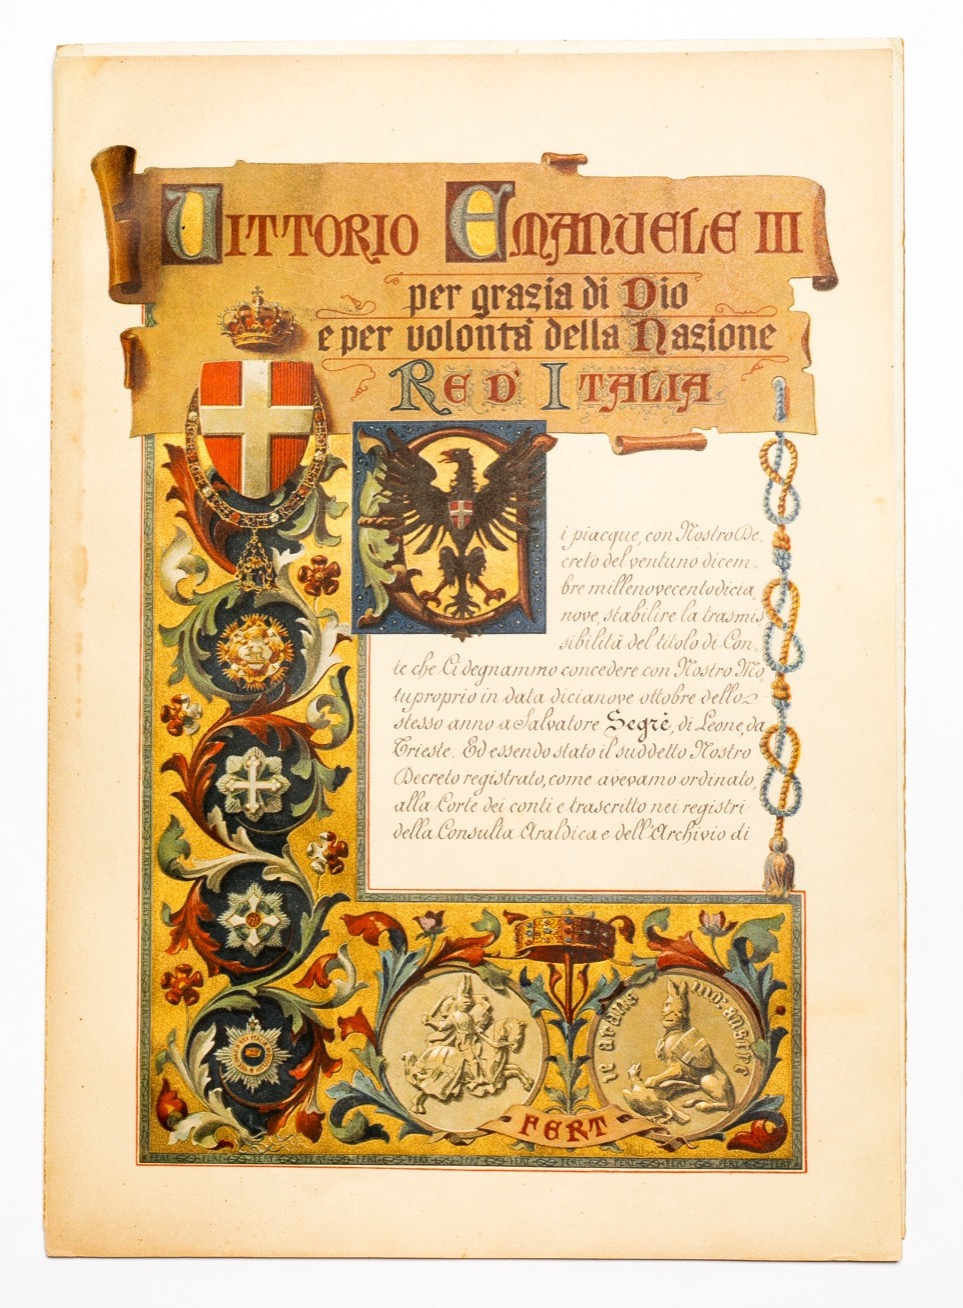 VITTORIO EMANUELE III
per grazia di Dio
e per volontà della Nazione
RE D' ITALIA
Ci piacque, con Nostro De-
creto del ventuno dicem-
bre millenovecentodicia-
nove, stabilire la trasmis
sibilità del titolo di Con-
te che Ci degnammo concedere con Nostro Mo-
tuproprio in data dicianove ottobre dello
stesso anno a Salvatore Segrè, di Leone, da
Trieste. Ed essendo stato il suddetto Nostro
Decreto registrato, come avevamo ordinato,
alla Corte dei conti e trascritto nei registri
della Consulta Araldica e dell'Archivio di
FERT
FERT FERT FERT FERT FERT FERT